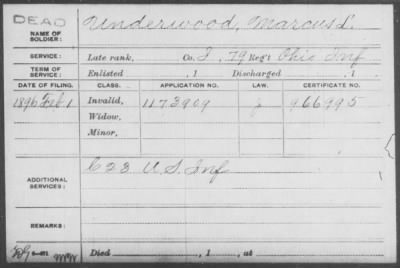 DEAD
NAME OF SOLDIER: Underwood, Marcus L.
SERVICE: Late rank, Co. I, 79 Reg't Ohio Inf
TERM OF SERVICE: Enlisted , 1 Discharged , 1
DATE OF FILING. CLASS. APPLICATION NO. LAW. CERTIFICATE NO.
1896 Feb 1 Invalid, 1173909 966995
Widow,
Minor,
ADDITIONAL SERVICES: C 23 U.S. Inf
REMARKS:
Died , 1 , at